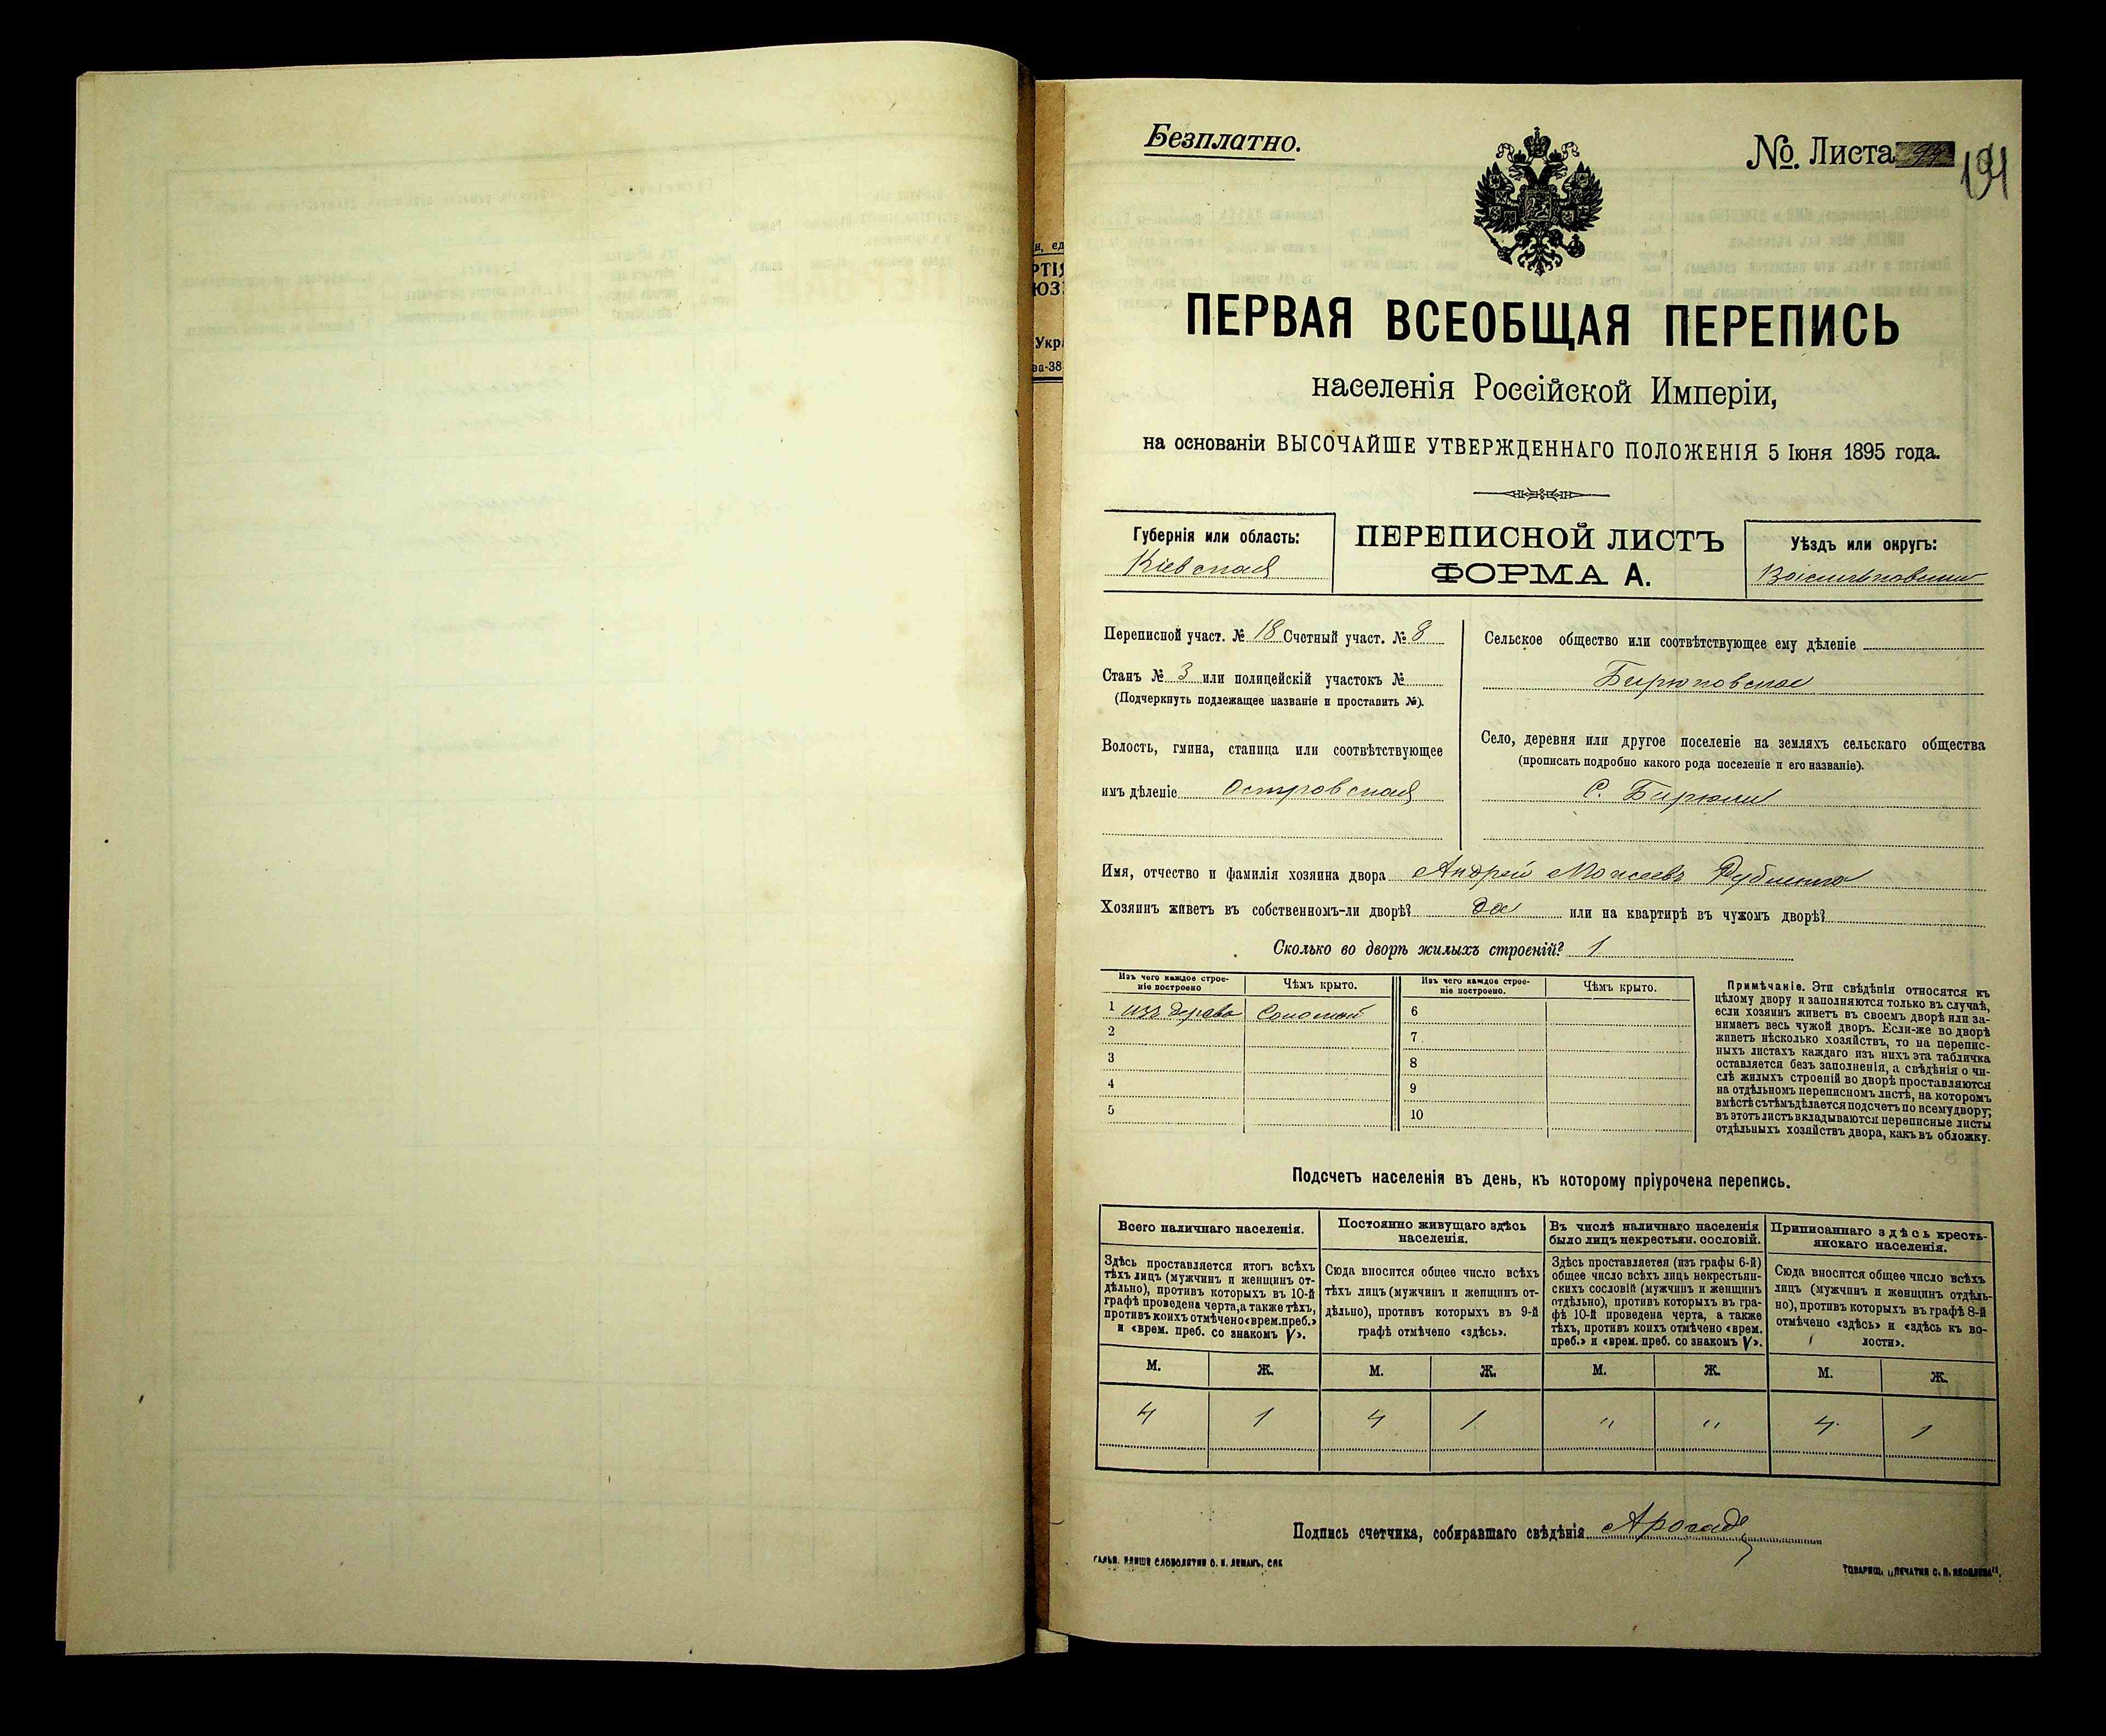 Безплатно.
№. Листа 94
191
ПЕРВАЯ ВСЕОБЩАЯ ПЕРЕПИСЬ
населенія Россійской Имперіи,
на основаніи ВЫСОЧАЙШЕ УТВЕРЖДЕННАГО ПОЛОЖЕНІЯ 5 Іюня 1895 года.
Губернія или область:
Кіевская
ПЕРЕПИСНОЙ ЛИСТЪ
ФОРМА А.
Уѣздъ или округъ:
Васильковскій
Переписной участ. № 18 Счетный участ. № 8
Станъ № 3 или полицейскій участокъ №
(Подчеркнуть подлежащее названіе и проставить №).
Волость, гмина, станица или соотвѣтствующее
имъ дѣленіе Островская
Сельское общество или соотвѣтствующее ему дѣленіе
Бирюковское
Село, деревня или другое поселеніе на земляхъ сельскаго общества
(прописать подробно какого рода поселеніе и его названіе).
С. Бирюки
Имя, отчество и фамилія хозяина двора Андрей Моисеевъ
Хозяинъ живетъ въ собственномъ-ли дворѣ? да или на квартирѣ въ чужомъ дворѣ?
Сколько во дворѣ жилыхъ строеній? 1
Изъ чего каждое строе-
ніе построено
Чѣмъ крыто.
Изъ чего каждое строе-
ніе построено.
Чѣмъ крыто.
1 изъ дерева Соломой 6
2 7
3 8
4 9
5 10
Примѣчаніе. Эти свѣдѣнія относятся къ
цѣлому двору и заполняются только въ случаѣ,
если хозяинъ живетъ въ своемъ дворѣ или за-
нимаетъ весь чужой дворъ. Если-же во дворѣ
живетъ нѣсколько хозяйствъ, то на перепис-
ныхъ листахъ каждаго изъ нихъ эта табличка
оставляется безъ заполненія, а свѣдѣнія о чи-
слѣ жилыхъ строеній во дворѣ проставляются
на отдѣльномъ переписномъ листѣ, на которомъ
вмѣстѣ съ тѣмъ дѣлается подсчетъ по всему двору;
въ этотъ листъ вкладываются переписные листы
отдѣльныхъ хозяйствъ двора, какъ въ обложку.
Подсчетъ населенія въ день, къ которому пріурочена перепись.
Всего наличнаго населенія.
Здѣсь проставляется итогъ всѣхъ
тѣхъ лицъ (мужчинъ и женщинъ от-
дѣльно), противъ которыхъ въ 10-й
графѣ проведена черта, а также тѣхъ,
противъ коихъ отмѣчено «врем. преб.»
и «врем. преб. со знакомъ V».
Постоянно живущаго здѣсь
населенія.
Сюда вносится общее число всѣхъ
тѣхъ лицъ (мужчинъ и женщинъ от-
дѣльно), противъ которыхъ въ 9-й
графѣ отмѣчено «здѣсь».
Въ числѣ наличнаго населенія
было лицъ некрестьян. сословій.
Здѣсь проставляется (изъ графы 6-й)
общее число всѣхъ лицъ некрестьян-
скихъ сословій (мужчинъ и женщинъ
отдѣльно), противъ которыхъ въ гра-
фѣ 10-й проведена черта, а также
тѣхъ, противъ коихъ отмѣчено «врем.
преб.» и «врем. преб. со знакомъ V».
Приписаннаго здѣсь кресть-
янскаго населенія.
Сюда вносится общее число всѣхъ
лицъ (мужчинъ и женщинъ отдѣль-
но), противъ которыхъ въ графѣ 8-й
отмѣчено «здѣсь» и «здѣсь къ во-
лости».
М. Ж. М. Ж. М. Ж. М. Ж.
4 1 4 1 " " 4 1
Подпись счетчика, собиравшаго свѣдѣнія
ГАЛЬВ. КЛИШЕ СЛОВОЛИТНИ О. И. ЛЕМАНЪ, СПБ
ТОВАРИЩ. „ПЕЧАТНЯ С. П. ЯКОВЛЕВА".